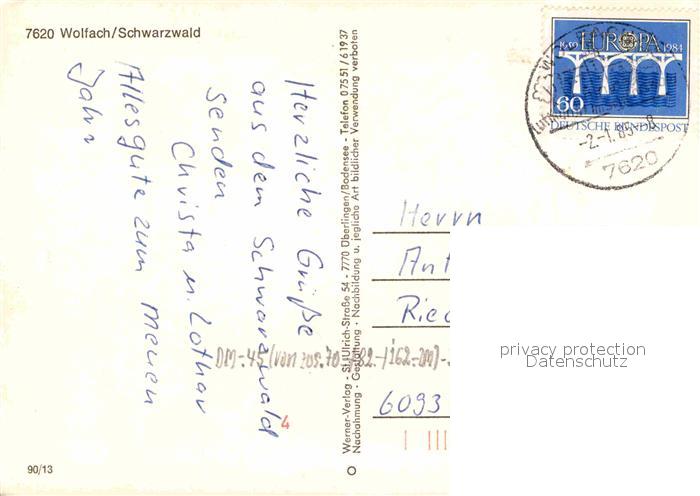 7620 Wolfach/Schwarzwald
Herzliche Grüße
aus dem Schwarzwald
senden
Christa u. Lothar
Allesgute zum neuen
Jahr
Werner-Verlag - St.-Ulrich-Straße 54 - 7770 Überlingen/Bodensee - Telefon 07551/61937
Nachahmung - Gestaltung - Nachbildung u. jeglicher Art bildlicher Verwendung verboten
1959 EUROPA 1984
60
DEUTSCHE BUNDESPOST
-2.-1.85-8
7620
Herrn
Ant
Ried
6093
privacy protection
Datenschutz
4
90/13